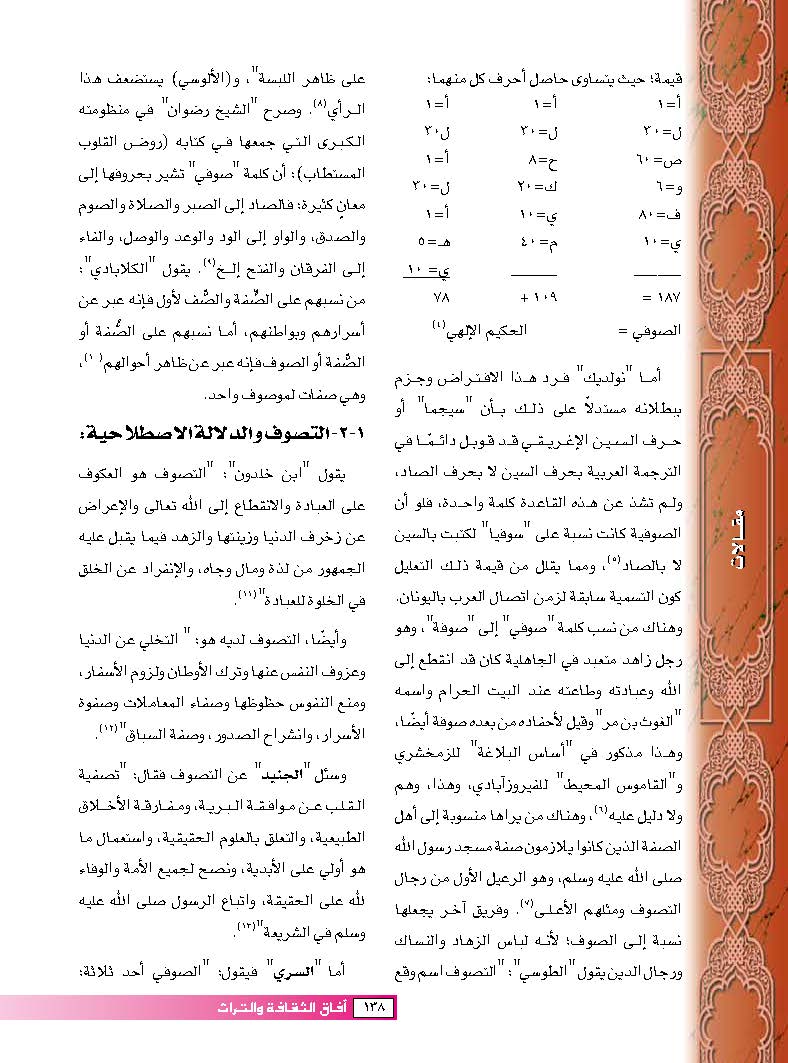 قيمة؛ حيث يتساوى حاصل أحرف كل منهما:
أ=١ أ=١ أ=١
ل=٣٠ ل=٣٠ ل٣٠
ص=٦٠ ح=٨ أ=١
و=٦ ك=٢٠ ل=٣٠
ف=٨٠ ي=١٠ أ=١
ي=١٠ م=٤٠ هـ=٥
ي=١٠
١٨٧ = ١٠٩ + ٧٨
الصوفي = الحكيم الإلهي(٤)
أما "نولديك" فرد هذا الافتراض وجزم
ببطلانه مستدلاً على ذلك بأن "سيجما" أو
حرف السين الإغريقي قد قوبل دائمًا في
الترجمة العربية بحرف السين لا بحرف الصاد،
ولم تشذ عن هذه القاعدة كلمة واحدة، فلو أن
الصوفية كانت نسبة على "سوفيا" لكتبت بالسين
لا بالصاد(٥)، ومما يقلل من قيمة ذلك التعليل
كون التسمية سابقة لزمن اتصال العرب باليونان.
وهناك من نسب كلمة "صوفي" إلى "صوفة"، وهو
رجل زاهد متعبد في الجاهلية كان قد انقطع إلى
الله وعبادته وطاعته عند البيت الحرام واسمه
"الغوث بن مر" وقيل لأحفاده من بعده صوفة أيضًا،
وهذا مذكور في "أساس البلاغة" للزمخشري
و"القاموس المحيط" للفيروزآبادي، وهذا، وهم
ولا دليل عليه(٦)، وهناك من يراها منسوبة إلى أهل
الصفة الذين كانوا يلازمون صفة مسجد رسول الله
صلى الله عليه وسلم، وهو الرعيل الأول من رجال
التصوف ومثلهم الأعلى(٧). وفريق آخر يجعلها
نسبة إلى الصوف؛ لأنه لباس الزهاد والنساك
ورجال الدين يقول "الطوسي": "التصوف اسم وقع
على ظاهر اللبسة"، و(الألوسي) يستضعف هذا
الرأي(٨). وصرح "الشيخ رضوان" في منظومته
الكبرى التي جمعها في كتابه (روض القلوب
المستطاب): أن كلمة "صوفي" تشير بحروفها إلى
معانٍ كثيرة: فالصاد إلى الصبر والصلاة والصوم
والصدق، والواو إلى الود والوعد والوصل، والفاء
إلى الفرقان والفتح إلخ(٩). يقول "الكلابادي":
من نسبهم على الصِّفة والصَّف لأول فإنه عبر عن
أسرارهم وبواطنهم، أما نسبهم على الصُّفة أو
الصُّفة أو الصوف فإنه عبر عن ظاهر أحوالهم(١٠)،
وهي صفات لموصوف واحد.
١-٢- التصوف والدلالة الاصطلاحية:
يقول "ابن خلدون": "التصوف هو العكوف
على العبادة والانقطاع إلى الله تعالى والإعراض
عن زخرف الدنيا وزينتها والزهد فيما يقبل عليه
الجمهور من لذة ومال وجاه، والإنفراد عن الخلق
في الخلوة للعبادة"(١١).
وأيضًا، التصوف لديه هو: "التخلي عن الدنيا
وعزوف النفس عنها وترك الأوطان ولزوم الأسفار،
ومنع النفوس حظوظها وصفاء المعاملات وصفوة
الأسرار، وانشراح الصدور، وصفة السباق"(١٢).
وسئل "الجنيد" عن التصوف فقال: "تصفية
القلب عن موافقة البرية، ومفارقة الأخلاق
الطبيعية، والتعلق بالعلوم الحقيقية، واستعمال ما
هو أولي على الأبدية، ونصح لجميع الأمة والوفاء
لله على الحقيقة، واتباع الرسول صلى الله عليه
وسلم في الشريعة"(١٣).
أما "السري" فيقول: "الصوفي أحد ثلاثة:
مقالات
١٣٨ آفاق الثقافة والتراث